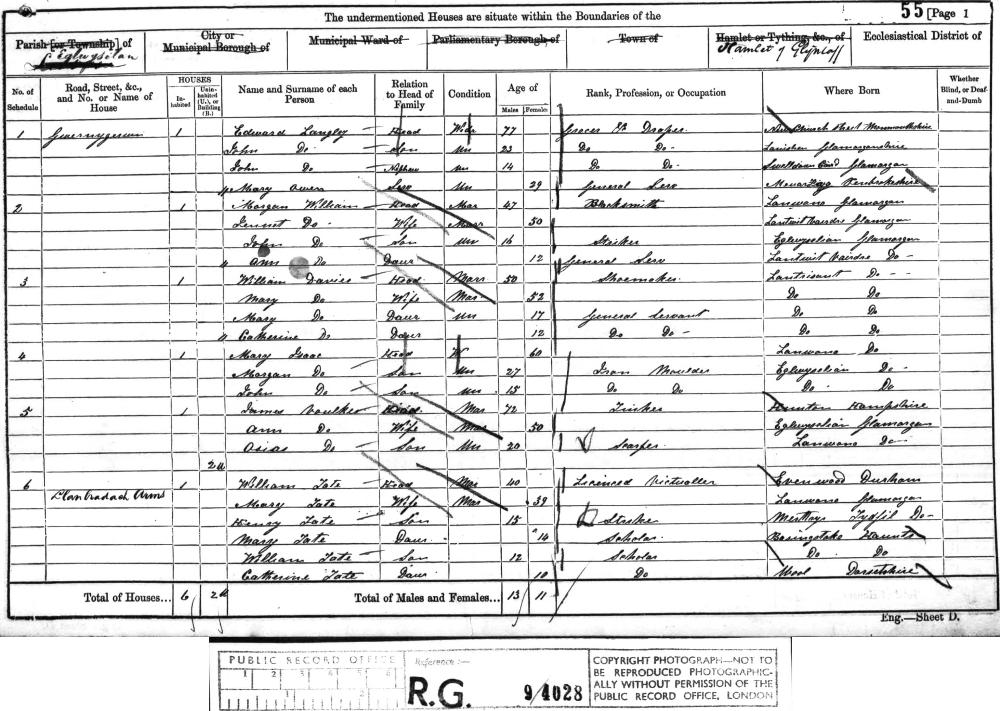 The undermentioned Houses are situate within the Boundaries of the
55 [Page 1
Parish [or Township] of
Eglwysilan
City or Municipal Borough of
Municipal Ward of
Parliamentary Borough of
Town of
Hamlet or Tything, &c., of
Hamlet of
Ecclesiastical District of
No. of Schedule
Road, Street, &c., and No. or Name of House
HOUSES
Inhabited
Uninhabited (U.), or Building (B.)
Name and Surname of each Person
Relation to Head of Family
Condition
Age of
Males
Females
Rank, Profession, or Occupation
Where Born
Whether Blind, or Deaf-and-Dumb
1 1 Edward Langley Head 77 Grocer & Draper Monmouthshire
John Do Son Un 23 Do Do Glamorganshire
John Do Nephew Un 14 Do Do Glamorgan
Mary Owen Serv Un 29 General Serv Pembrokeshire
2 1 Morgan William Head Mar 47 Blacksmith Lanwano Glamorgan
Jennet Do Wife Marr 50 Glamorgan
John Do Son Un 16 Striker Glamorgan
Ann Do Daur 12 General Serv Lantwit Vairdre Do
3 1 William Davies Head Marr 50 Shoemaker Lantrisant Do
Mary Do Wife Mar 52 Do Do
Mary Do Daur Un 17 General Servant Do Do
Catherine Do Daur 12 Do Do Do Do
4 1 Mary Isaac Head W 60 Lanwano Do
Morgan Do Son Un 27 Iron Moulder Do
John Do Son Un 15 Do Do Do Do
5 1 James Head Mar 72 Tinker Hampshire
Ann Do Wife Mar 50 Glamorgan
Do Son Un 20 Lanwano Do
2u
6 Llanbradach Arms 1 William Tate Head Mar 40 Licenced Victualler Evenwood Durham
Mary Tate Wife Mar 39 Lanwano Glamorgan
Henry Tate Son 15 Tydfil Do
Mary Tate Daur 14 Scholar Hants
William Tate Son 12 Scholar Do Do
Catherine Tate Daur 10 Do Wool Dorsetshire
Total of Houses... 6 2u
Total of Males and Females... 13 11
Eng.—Sheet D.
PUBLIC RECORD OFFICE
1 2 3 4 5 6
Reference:—
R.G. 9/4028
COPYRIGHT PHOTOGRAPH—NOT TO
BE REPRODUCED PHOTOGRAPHIC-
ALLY WITHOUT PERMISSION OF THE
PUBLIC RECORD OFFICE, LONDON